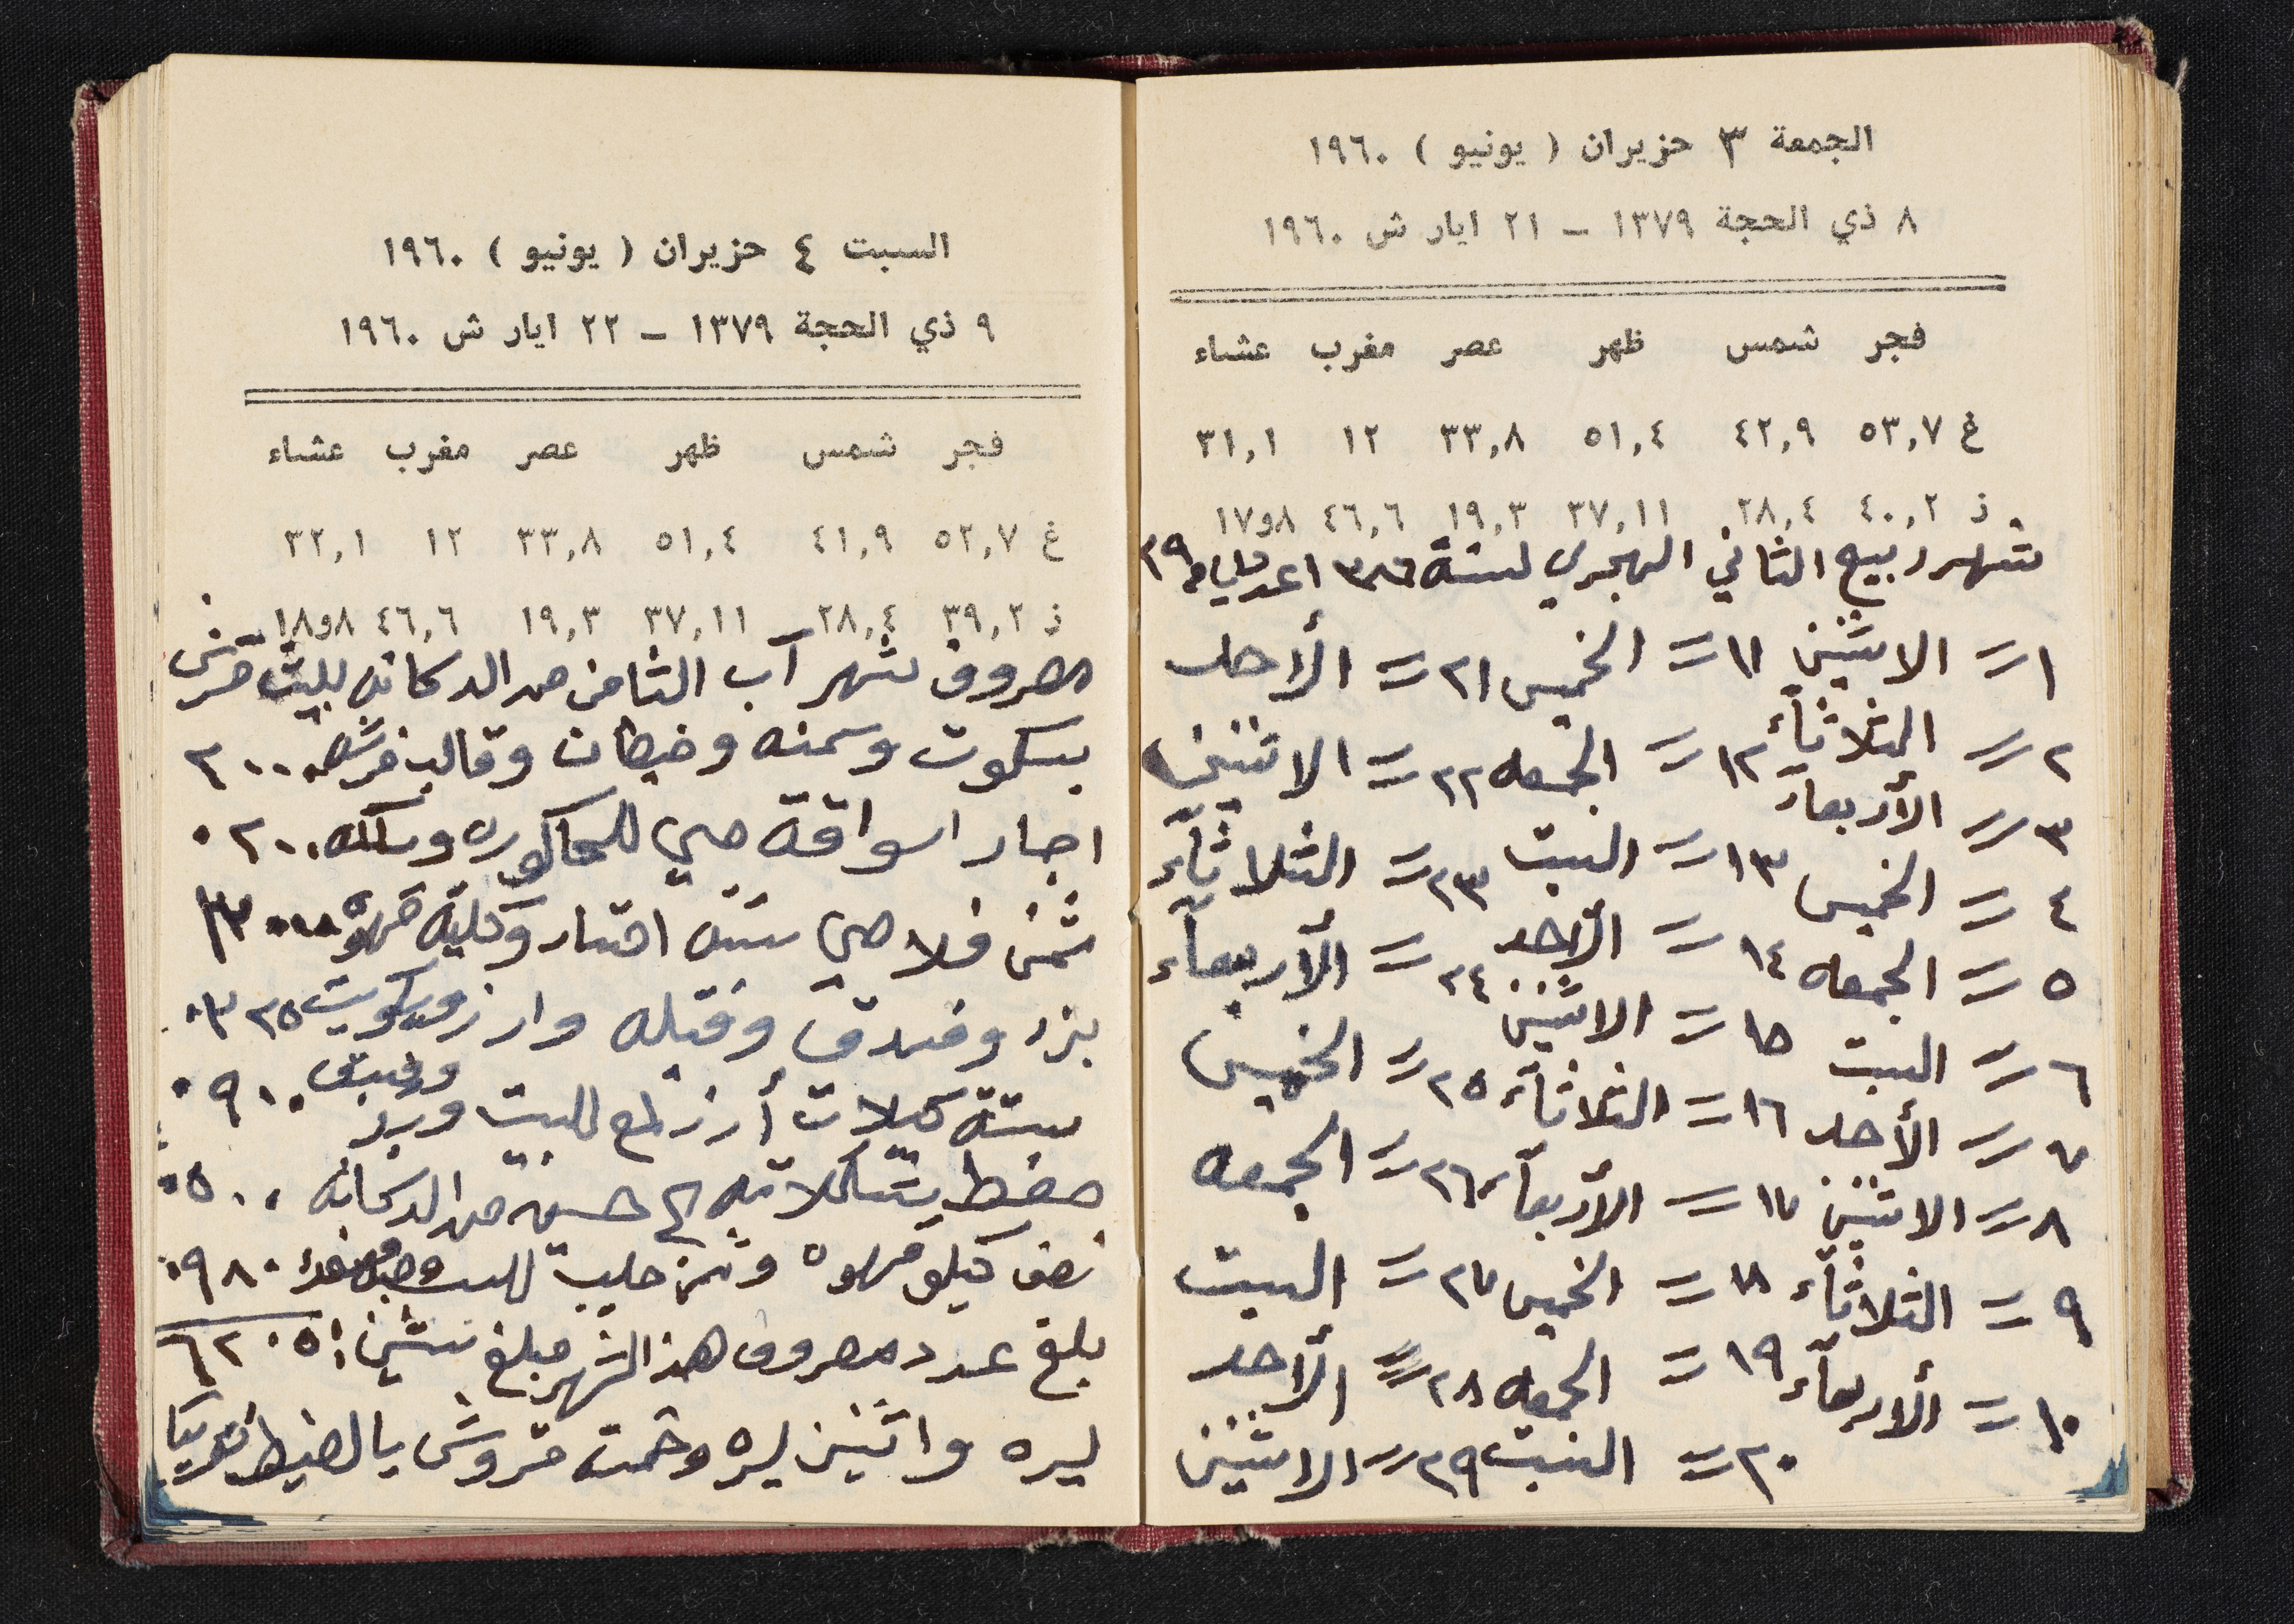 الجمعة ٣ حزيران ( يونيو ) ١٩٦٠
٨ ذي الحجة ١٣٧٩ – ٢١ ايار ش ١٩٦٠
فجر شمس ظهر عصر مغرب عشاء
غ ٥٣,٧ ٤٢,٩ ٥١,٤ ٣٣,٨ ١٢ ٣١,١
ذ ٤٠,٢ ٢٨,٤ ٣٧,١١ ١٩,٣ ٤٦,٦ ٨و١٧
شهر ربيع الثاني الهجري لسنة ١٣٨٦ ٢٩
١ = الاثنين ١١ = الخميس ٢١ = الأحد
٢ = الثلاثاء ١٢ = الجمعه ٢٢ = الاثنين
٣ = الأربعاء ١٣ = السبت ٢٣ = الثلاثاء
٤ = الخميس ١٤ = الأحد ٢٤ = الأربعاء
٥ = الجمعه ١٥ = الاثنين ٢٥ = الخميس
٦ = السبت ١٦ = الثلاثاء ٢٦ = الجمعه
٧ = الأحد ١٧ = الأربعاء ٢٧ = السبت
٨ = الاثنين ١٨ = الخميس ٢٨ = الأحد
٩ = الثلاثاء ١٩ = الجمعه ٢٩ = الاثنين
١٠ = الأربعاء ٢٠ = السبت
السبت ٤ حزيران ( يونيو ) ١٩٦٠
٩ ذي الحجة ١٣٧٩ – ٢٢ ايار ش ١٩٦٠
فجر شمس ظهر عصر مغرب عشاء
غ ٥٢,٧ ٤١,٩ ٥١,٤ ٣٣,٨ ١٢ ٣٢,١
ذ ٣٩,٢ ٢٨,٤ ٣٧,١١ ١٩,٣ ٤٦,٦ ٨و١٨
مصروف شهر آب الثامن من الدكانه قرش
بسكوت وسمنه وخيطان وقالب ٢٠٠٠
اجار اسواقة مي للحاكوره ٠٢٠٠
ثمن فلاحي ستة وكلية قهوه
بزر وفندق وفتله وارز وبسكويت ٠٣٢٥
ستة كيلات أرز للبيت وبزر وفستق ٠٩١٠
حسين من الدكانه ٠٥٠٠
نصف كيلو قهوه وثمن حليب ٠٩٨٠
بلغ عدد مصروف هذا الشهر مبلغ ستين ٦٢٠٥
ليره واثنين ليره وخمسة قروش بالضبط تقريبا